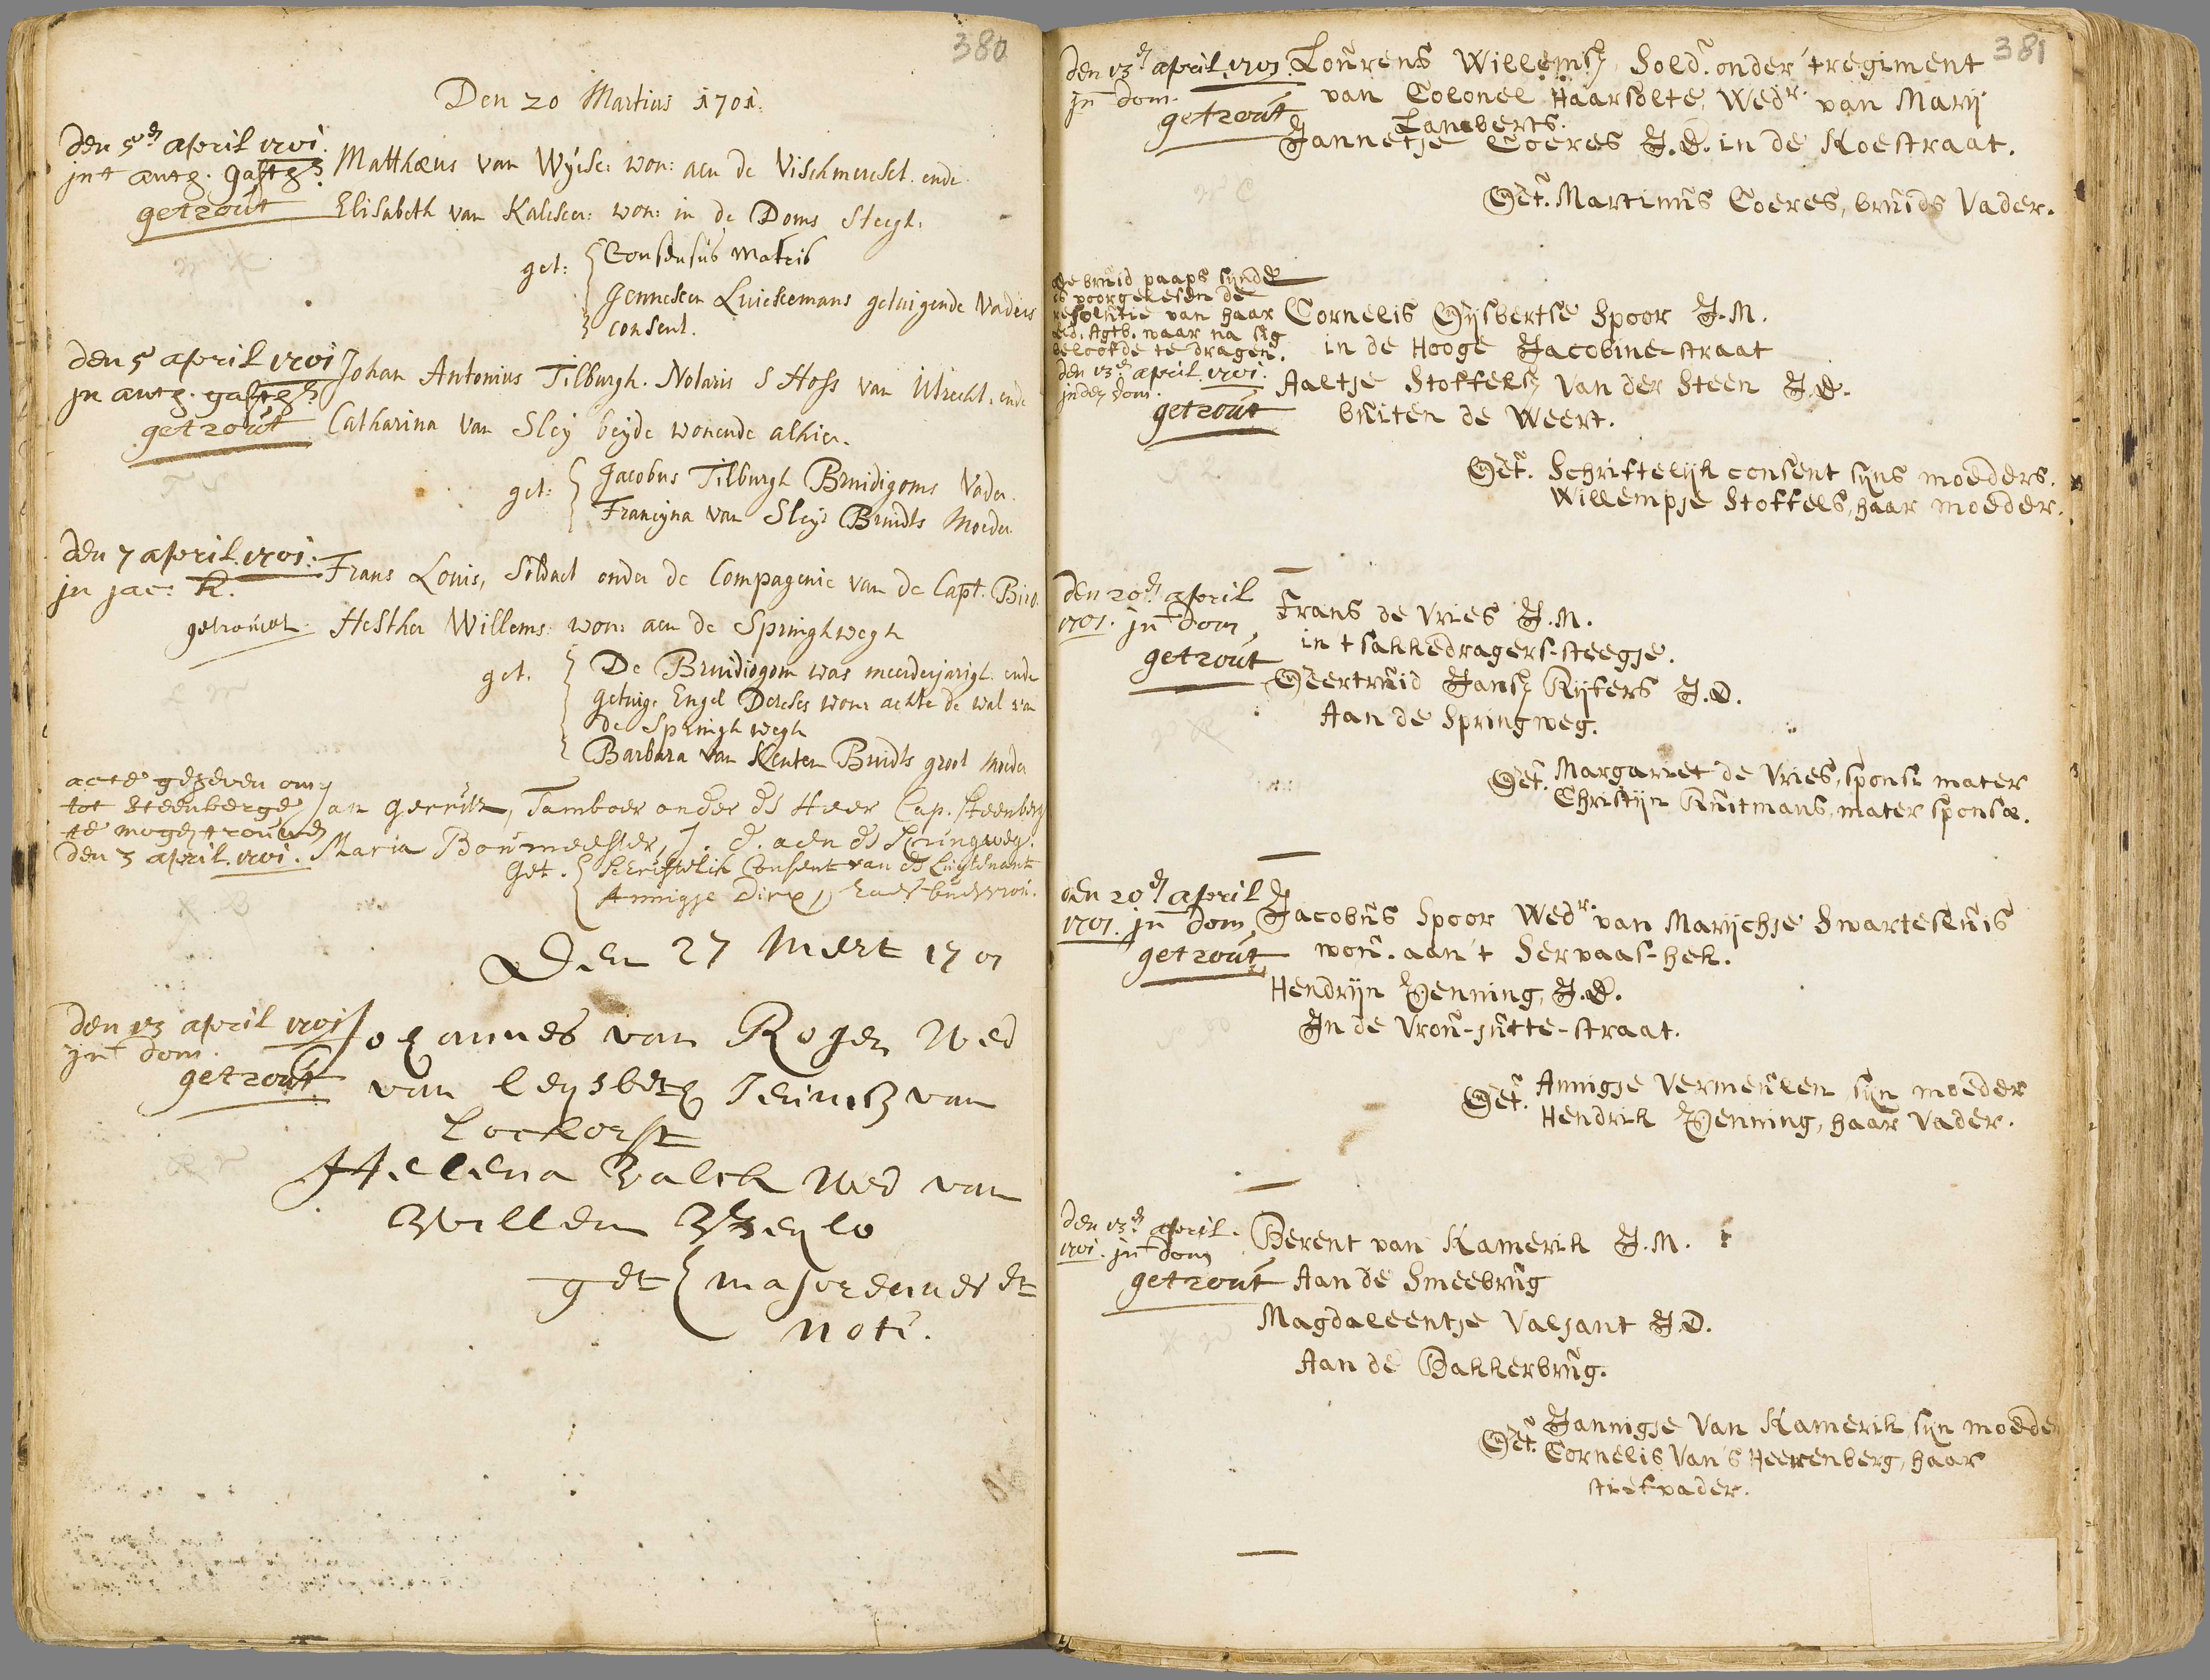 380
Den 20 Martius 1701.
den 5en april 1701.
jnt anth. gasth.
getrout
Matthæus van Wijck: won: aen de Vischmerckt. ende
Elisabeth van Kalcker: won: in de Doms steegh.
get: Consensus Matris
Jenneken Luickemans getuigende Vaders
consent.
den 5 april 1701
jn anth. gasth.
getrout
Johan Antonius Tilburgh. Notaris S Hofs van Utrecht. ende
Catharina van Sley beyde wonende alhier.
get: Jacobus Tilburgh Bruidigoms Vader.
Francyna van Sley: Bruidts Moeder
den 7 april. 1701.
jn jac: K.
getrouwt.
Frans Louis, Soldaet onder de Compagenie van de Capt.
Hesther Willems: won: aen de Springhwegh
get. De Bruidiogom was meerderjarigh. ende
getuige Engel Derckes won: achter de wal van
de Springhwegh
Barbara van Kenten Bruidts groot Moeder
acte gegeven om
tot Steenberge
te mogen trouwen
den 3 april. 1701.
Jan Gerritz, Tamboer onder de Heer Cap. Steenberg
Maria Boumeester, J. d. aen de Springweg.
Get. Schriftelick Consent van de Luijtenant
Annigje Dirx, haer buervrou.
Den 27 Mert 1701
den 13 april 1701
jnt dom.
getrout
Johannes van Rogen Wed
van van
Lockorst
Helena Valck Wed van
Willem
get majorennes et
noti.
381
den 13en april. 1701.
jnt dom.
getrout
Lourens Willemsz, Sold. onder 't regiment
van Colonel Haarsolte, Wedr. van Marij
Lamberts.
Jannetje Coeres J.D. in de Koestraat.
Get. Martinus Coeres, bruids Vader.
de bruid paaps synde
is voorgelesen de
resolutie van haar
Ed. Agtb. waar na sig
beloofde te dragen.
den 13en april. 1701.
jnden dom.
getrout
Cornelis Gijsbertse Spoor J.M.
in de Hooge Jacobine-straat
Aaltje Stoffelsz Van der Steen J.D.
buiten de Weert.
Get. Schriftelijk consent sijns moeders.
Willempje Stoffels, haar moeder.
den 20en april
1701. jnt dom
getrout
Frans de Vries J.M.
in 't sakkedragers-steegje.
Geertruid Jansz Kijfers J.D.
Aan de Springweg.
Get. Margariet de Vries, sponsi mater
Christijn Kuitmans, mater sponsæ.
den 20en april
1701. jnt dom
getrout
Jacobus Spoor Wedr. van Marijchje Swartesluis
won. aan 't Servaas-hek.
Hendrijn Henning, J.D.
In de Vrou-jutte-straat.
Get. Annigje Vermeulen sijn moeder
Hendrik Henning, haar Vader.
den 13en april.
1701. jnt dom
getrout
Berent van Kamerik J.M.
Aan de Smeebrug
Magdaleentje Valjant J.D.
Aan de Bakkerbrug.
Get. Jannigje Van Kamerik sijn moeder
Cornelis Van 's Heerenberg, haar
stiefvader.